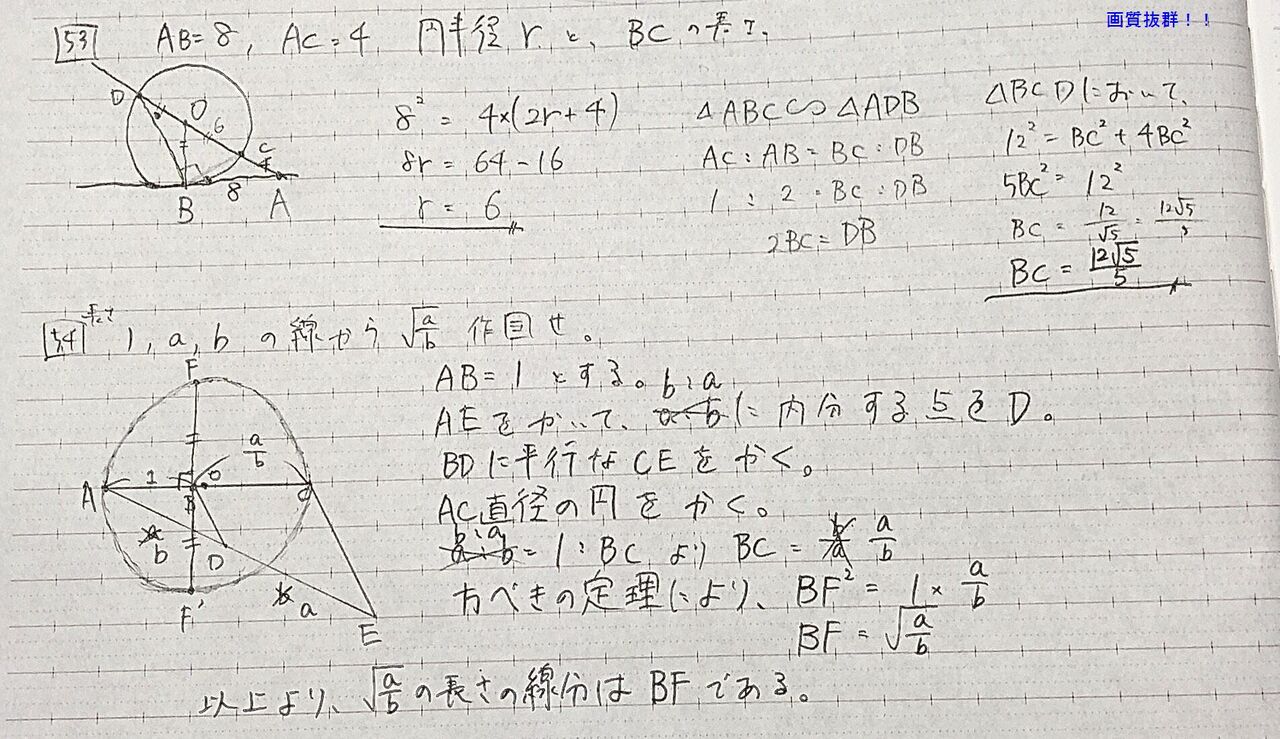 画質抜群！！
53 AB=8, AC=4 円半径 r と、BC の長さ。
D O 6 C 4 8 B A
8² = 4×(2r+4)
8r = 64-16
r = 6
△ABC∽△ADB
AC:AB=BC:DB
1:2=BC:DB
2BC=DB
△BCDにおいて、
12²=BC²+4BC²
5BC²=12²
BC = 12/√5 = 12√5/5
BC = 12√5/5
54 長さ 1, a, b の線から √(a/b) 作図せ。
F a/b 1 O A B C b D a F' E
AB=1 とする。
AEをかいて、b:a に内分する点をD。
BDに平行なCEをかく。
AC直径の円をかく。
b:a = 1:BC より BC = a/b
方べきの定理により、BF² = 1× a/b
BF = √(a/b)
以上より、√(a/b) の長さの線分は BF である。